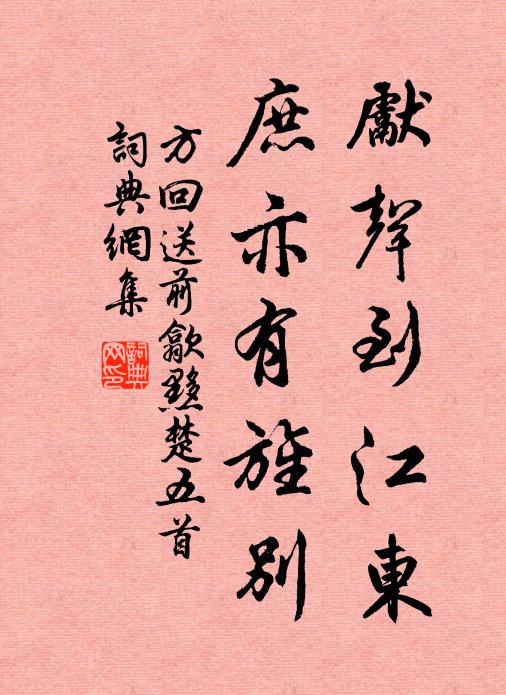 獻聲到江東
庶亦有旌別
方回送前歙黟楚五首
詞典網集
詞典网印